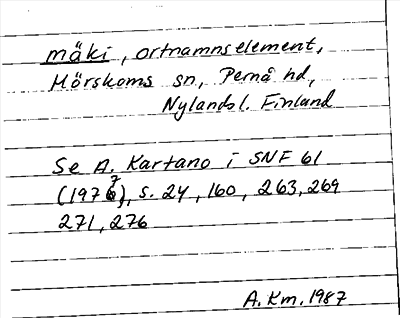 mäki, ortnamnselement,
Mörskoms sn, Pernå hd,
Nylandsl. Finland
Se A. Kartano i SNF 61
(1977), s. 24, 160, 263, 269
271, 276
A. Km. 1987